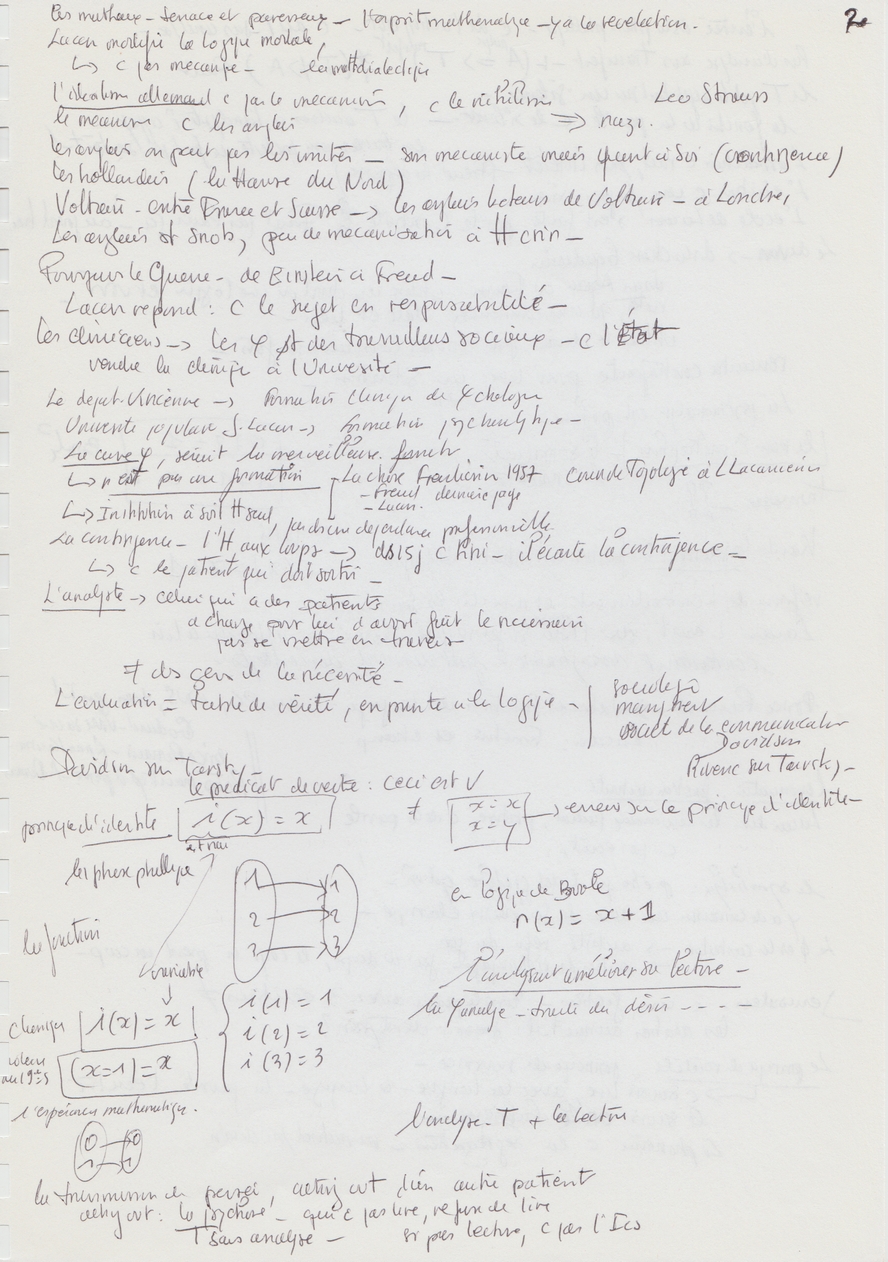 2
Les matheux - tenace et paresseux - l'esprit mathematique - y a la révélation.
Lacan modifie la logique modale,
↳ c pas mecanique - la mathdialectique
l'idealisme allemand c pas le mecanisme, c le nihilisme Leo Strauss
le mecanisme c les anglais ⇒ nazi.
les anglais on peut pas les imiter - son mecaniste mais quant à soi (contingence)
Les hollandais (la Hanse du Nord)
Voltaire - entre France et Suisse → les anglais lecteurs de Voltaire - à Londres,
Les anglais st snob, peu de mecanisation à
Pourquoi la Guerre - de Einstein à Freud -
Lacan repond : c le sujet en responsabilité -
les cliniciens → les φ st des travailleurs sociaux - c l'État
vendre la clinique à l'Université -
Le depart-Vincenne → Formation clinique de ψchologue
Universite populaire J. Lacan → formation psychanalytique -
La cure ψ, serait la merveilleuse
↳ n'est pas une formation - La chose Freudienne 1957 cours de Topologie à
- Freud derniere page
- Lacan.
↳ Institution à soit H seul, pas d'une dependance professionnelle.
La contingence - l'H aux loups → ds 15 j c fini - il écarte la contingence -
↳ c le patient qui doit sortir -
L'analyste → celui qui a des patients
a charge pour lui d'avoir fait le necessaire
pas se mettre en travers
≠ des gens de la nécessité -
L'evaluation = table de vérité, emprunte à la logique - sociologie
management
societ de la communication
Davidson
Rivenc sur Tarsky -
Davidson sur Tarsky
le prédicat de verite : ceci est V
principe d'identite i(x) = x ≠ x = x
x = y → erreur sur le principe d'identite -
la phase phallique
1 → 1
2 → 2
3 → 3
en logique de Boole
n(x) = x + 1
la fonction
variable
L'analysant améliorer sa lecture -
la ψanalyse - traite du désir - - - -
changer i(x) = x
(x=1) = x
i(1) = 1
i(2) = 2
i(3) = 3
l'espérance mathematique.
0 → 0
1 → 1
l'analyse - T + la lecture
la transmission de pensée, acting out d'un autre patient
acting out : la psychose - qui c pas lire, refuse de lire
T sans analyse - si pas lecture, c pas l'Ics